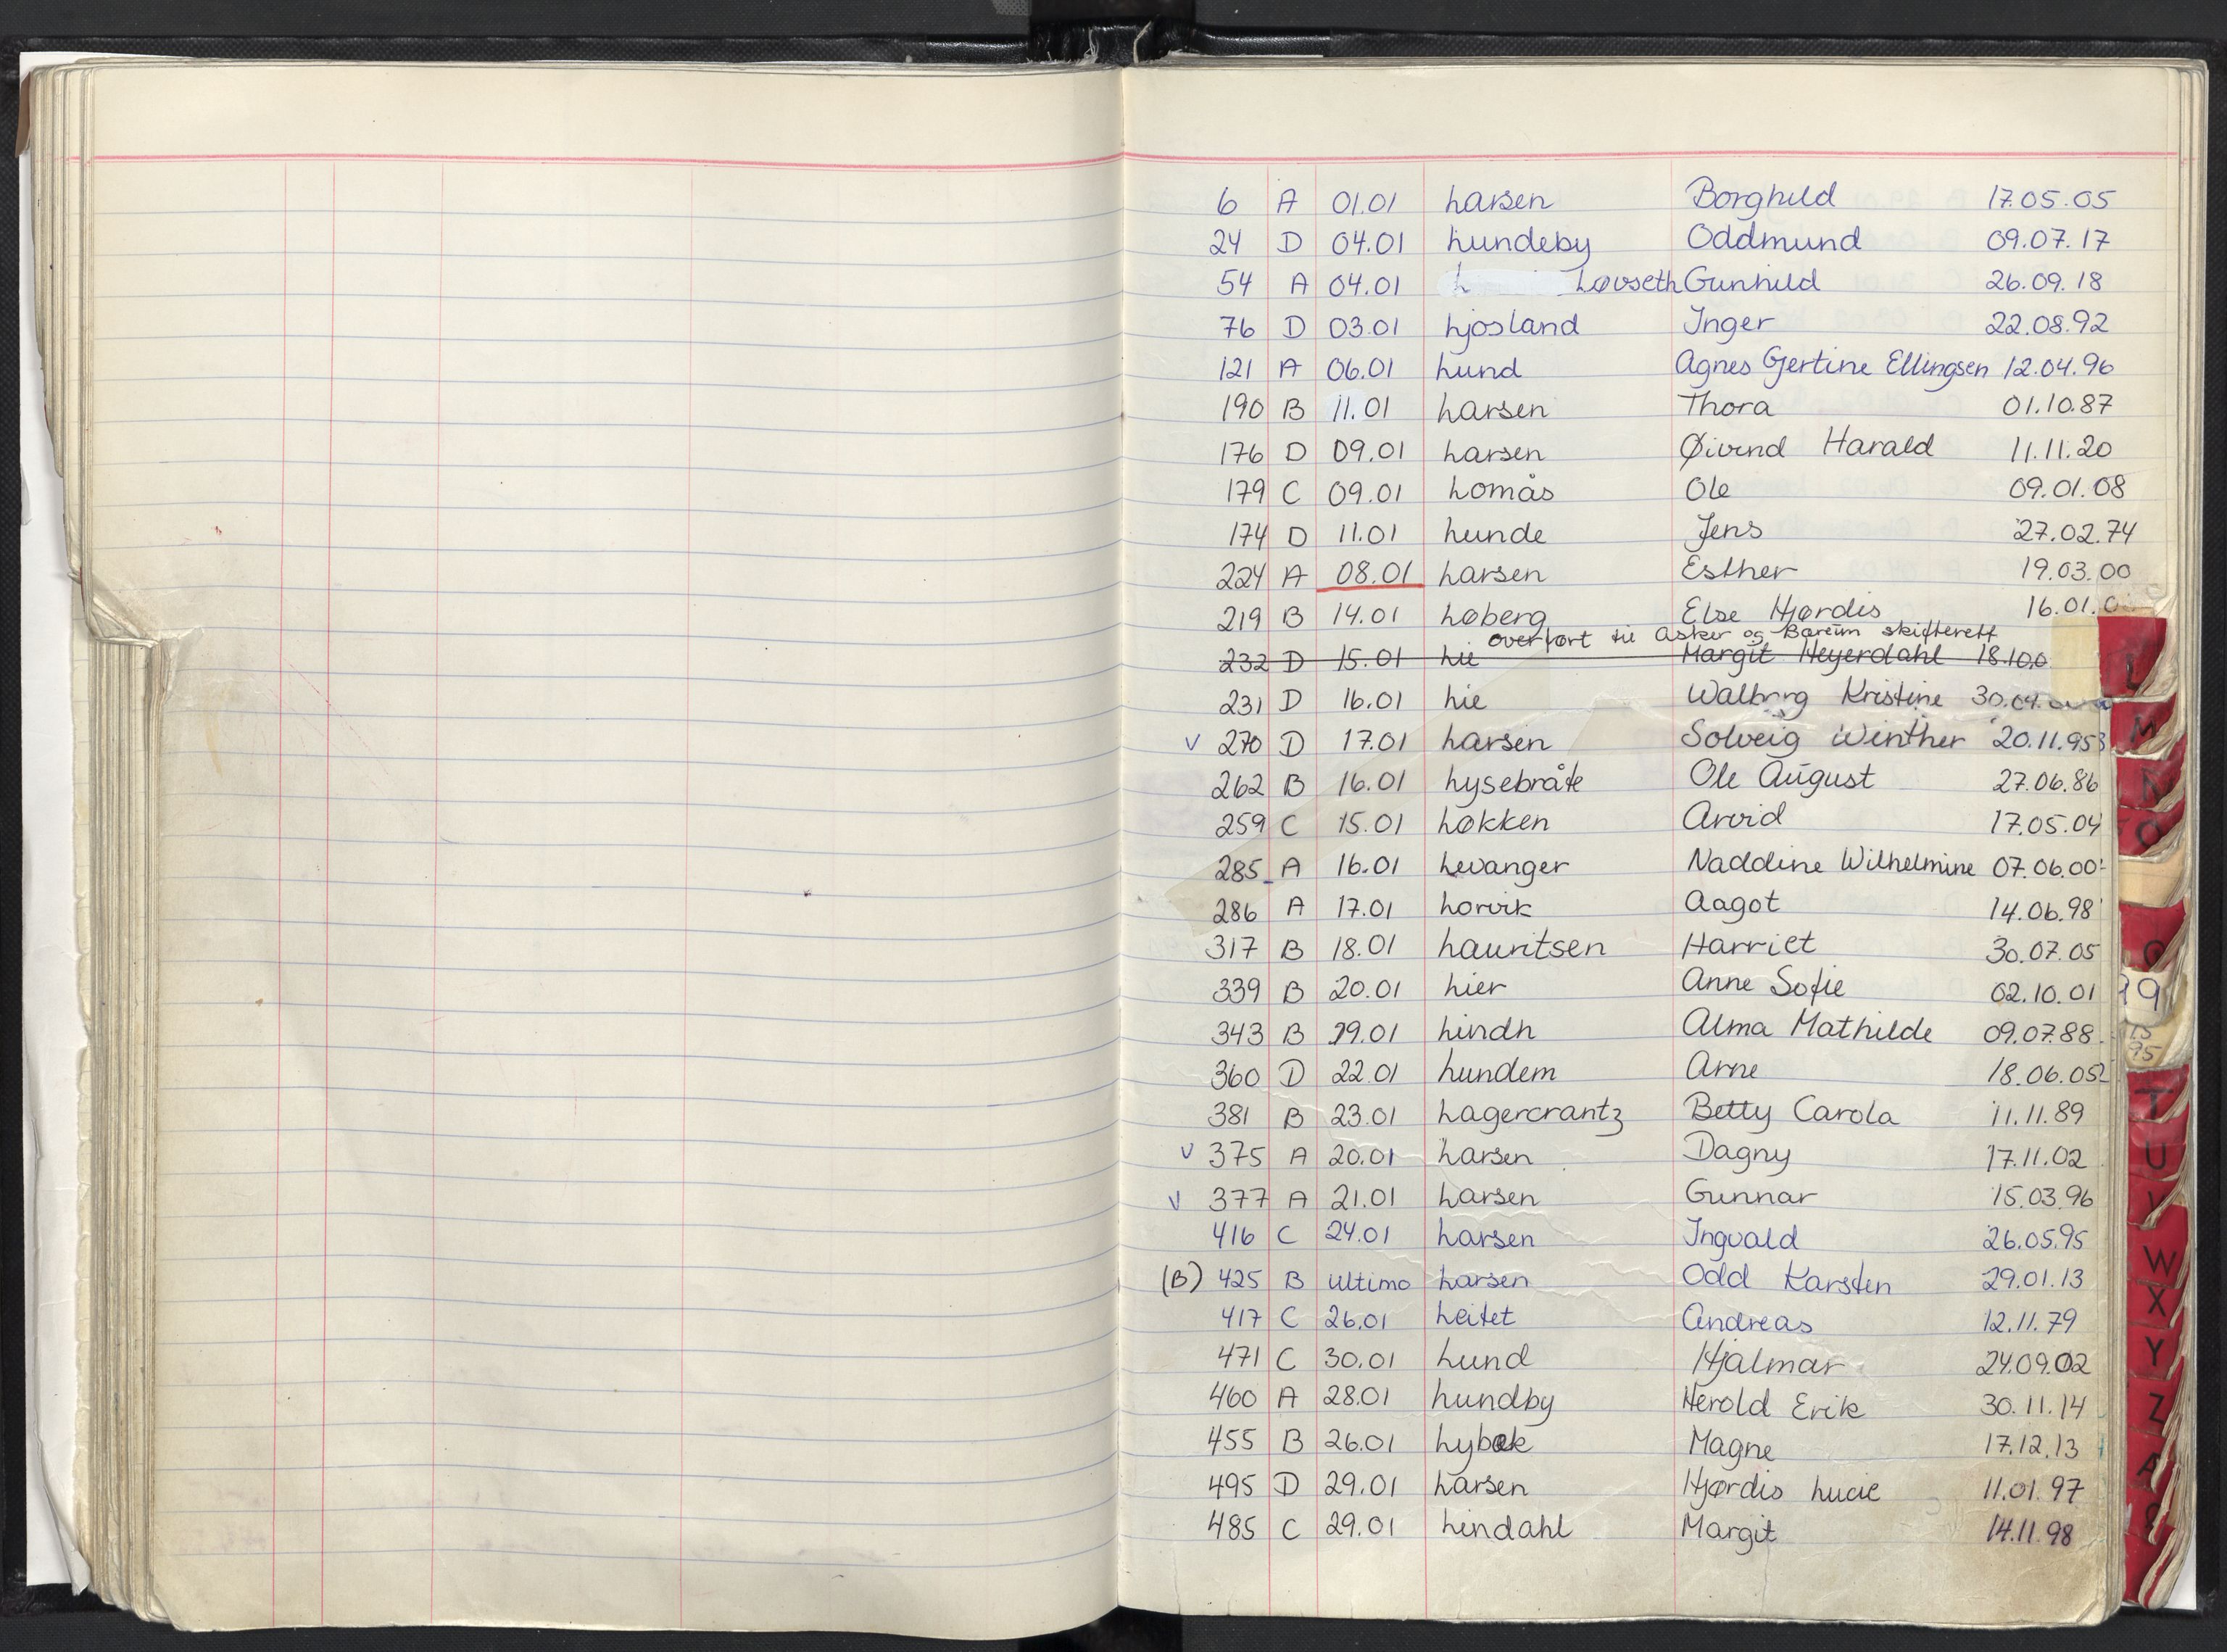 6 A 01.01 Larsen Borghild 17.05.05
24 D 04.01 Lundeby Oddmund 09.07.17
54 A 04.01 L Løvseth Gunhild 26.09.18
76 D 03.01 Ljosland Inger 22.08.92
121 A 06.01 Lund Agnes Gjertine Ellingsen 12.04.96
190 B 11.01 Larsen Thora 01.10.87
176 D 09.01 Larsen Øivind Harald 11.11.20
179 C 09.01 Lomås Ole 09.01.08
174 D 11.01 Lunde Jens 27.02.74
224 A 08.01 Larsen Esther 19.03.00
219 B 14.01 Løberg Else Hjørdis 16.01.0
overført til Asker og Bærum skifterett
232 D 15.01 Lie Margit Heyerdahl 18.10.0
231 D 16.01 Lie Walborg Kristine 30.04.
V 270 D 17.01 Larsen Solveig Winther 20.11.95
262 B 16.01 Lysebråte Ole August 27.06.86
259 C 15.01 Løkken Arvid 17.05.04
285 A 16.01 Levanger Naddine Wilhelmine 07.06.00
286 A 17.01 Lorvik Aagot 14.06.98
317 B 18.01 Lauritsen Harriet 30.07.05
339 B 20.01 Lier Anne Sofie 02.10.01
343 B 19.01 Lindh Alma Mathilde 09.07.88
360 D 22.01 Lundem Arne 18.06.05
381 B 23.01 Lagercrantz Betty Carola 11.11.89
V 375 A 20.01 Larsen Dagny 17.11.02
V 377 A 21.01 Larsen Gunnar 15.03.96
416 C 24.01 Larsen Ingvald 26.05.95
(B) 425 B ultimo Larsen Odd Karsten 29.01.13
417 C 26.01 Leitet Andreas 12.11.79
471 C 30.01 Lund Hjalmar 24.09.02
460 A 28.01 Lundby Herold Erik 30.11.14
455 B 26.01 Lybæk Magne 17.12.13
495 D 29.01 Larsen Hjørdis Lucie 11.01.97
485 C 29.01 Lindahl Margit 14.11.98
L
M
N
O
T
U
V
W
X
Y
Z